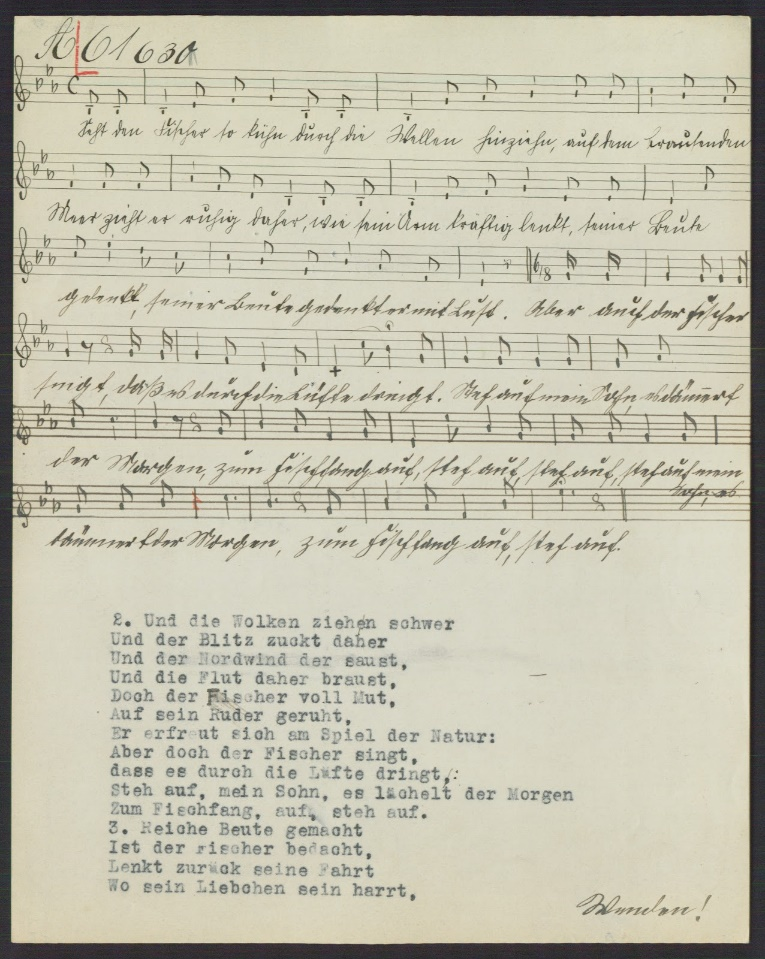 A 61 630
Seht den Fischer so kühn durch die Wellen hinziehn, auf dem brausenden
Meer zieht er ruhig daher, wie sein Arm kräftig lenkt, seiner Beute
gedenkt, seiner Beute gedenkt er mit Lust. Aber auch der Fischer
singt, daß es durch die Lüfte dringt. Steh auf mein Sohn, es dämmert
der Morgen, zum Fischfang auf, steh auf, steh auf, steh auf mein
Sohn, es
dämmert der Morgen, zum Fischfang auf, steh auf.
2. Und die Wolken ziehen schwer
Und der Blitz zuckt daher
Und der Nordwind der saust,
Und die Flut daher braust,
Doch der Fischer voll Mut,
Auf sein Ruder geruht,
Er erfreut sich am Spiel der Natur:
Aber doch der Fischer singt,
dass es durch die Lüfte dringt,:
Steh auf, mein Sohn, es lächelt der Morgen
Zum Fischfang, auf, steh auf.
3. Reiche Beute gemacht
Ist der Fischer bedacht,
Lenkt zurück seine Fahrt
Wo sein Liebchen sein harrt,
Wenden!